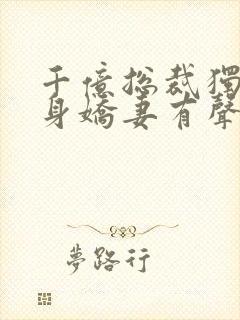 千億總裁獨
身嬌妻有聲
夢路行